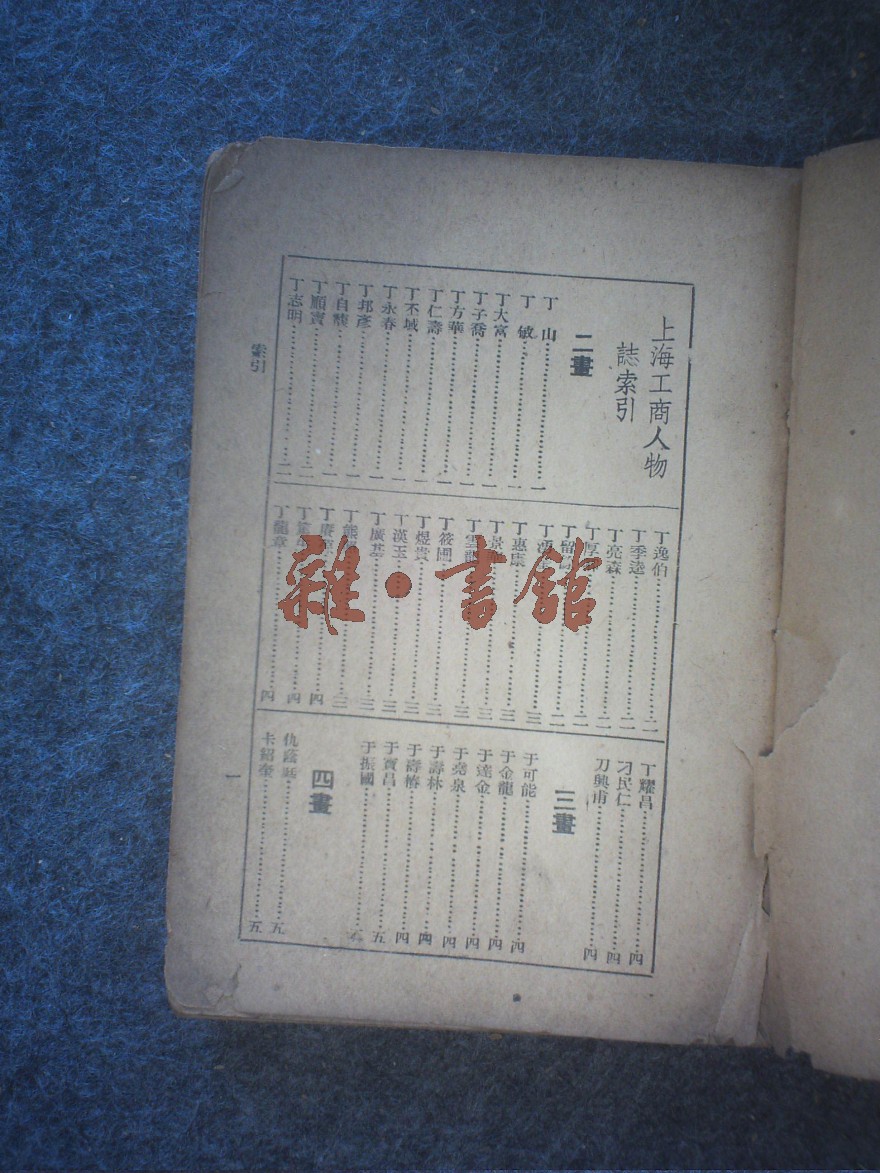 上海工商人物
誌索引
二畫
丁山……一
丁敏……一
丁大富……一
丁子喬……一
丁方華……一
丁仁壽……一
丁丕域……一
丁永春……一
丁邦彥……一
丁自……一
丁順寶……二
丁志明……二
丁逸伯……二
丁季逵……二
丁亮森……二
丁厚……二
丁留……二
丁……三
丁惠康……三
丁景……三
丁雲龍……三
丁筱圃……三
丁煜貴……三
丁漢玉……三
丁廣基……三
丁熊……三
丁……四
丁……四
丁龍章……四
丁耀昌……四
刁民仁……四
刀興甫……四
三畫
于可能……四
于金龍……四
于達金……四
于堯泉……四
于壽林……四
于壽椿……四
于賈昌……五
于振國……五
四畫
仇蔭廷……五
卡紹奎……五
索引
一
雜·書館